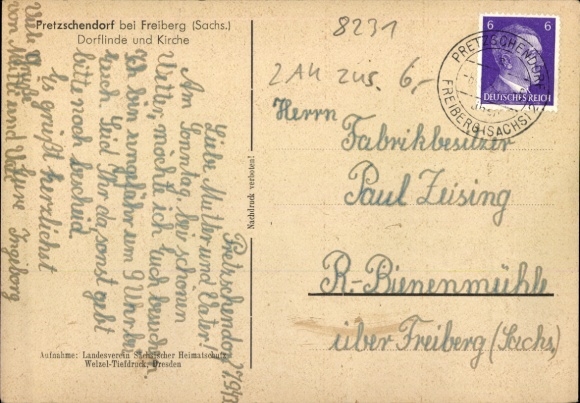 Pretzschendorf bei Freiberg (Sachs.)
Dorflinde und Kirche
8231
2 AK zus. 6,-
6 6
DEUTSCHES REICH
PRETZSCHENDORF
FREIBERG (SACHS) 2
Herrn
Fabrikbesitzer
Paul Zeising
R.-Bienenmühle
über Freiberg (Sachs.)
Nachdruck verboten!
Pretzschendorf
Liebe Mutter und Vater!
Am Sonntag, bei schönem
Wetter, möchte ich Euch besuchen.
Ich bin ungefähr um 9 Uhr bei
Euch. Seid Ihr da, sonst gebt
bitte noch bescheid
Es grüßt herzlichst
Eure Ingeborg
Viele Grüße
von Mutti und Vati
Aufnahme: Landesverein Sächsischer Heimatschutz
Welzel-Tiefdruck, Dresden